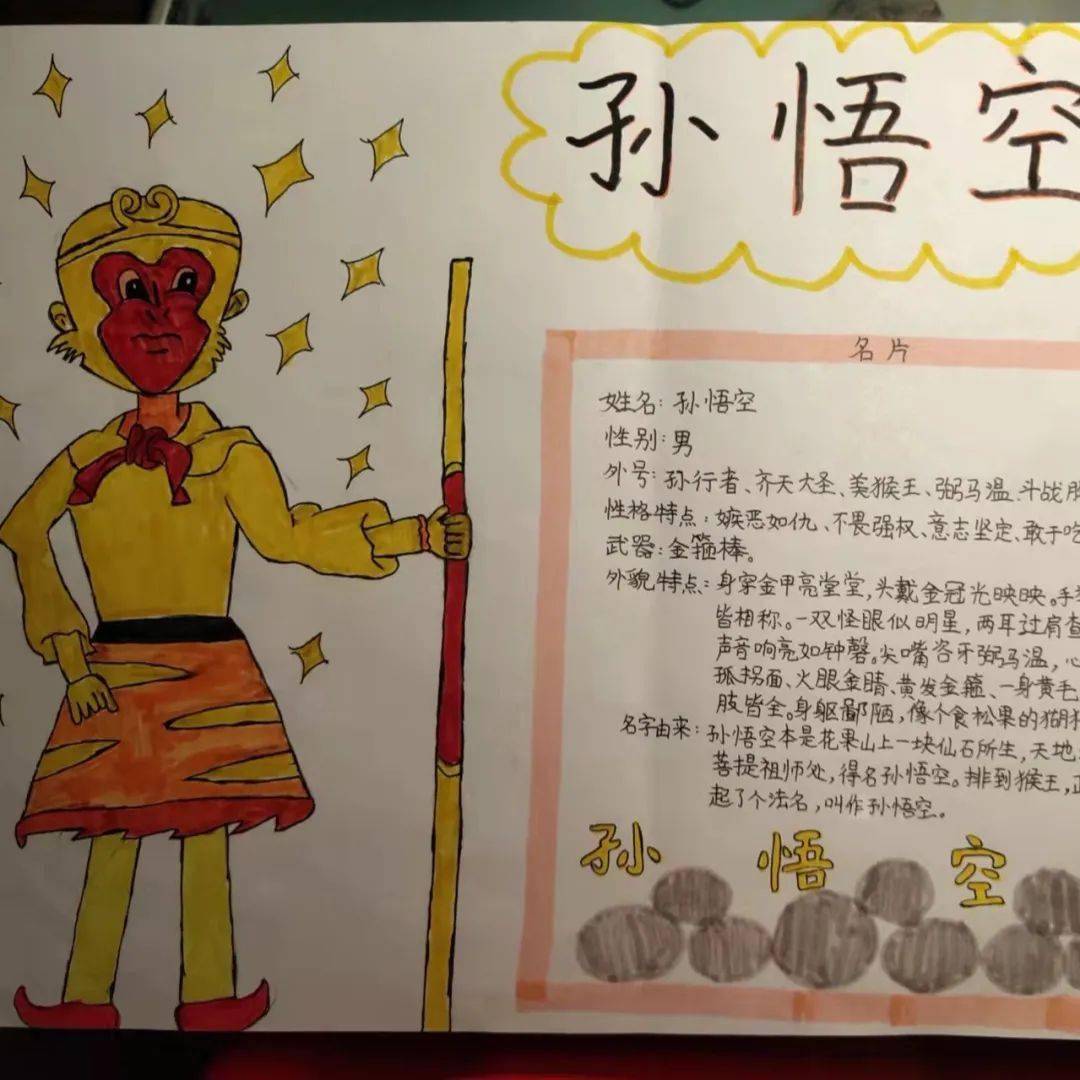 孙悟空
名片
姓名：孙悟空
性别：男
外号：孙行者、齐天大圣、美猴王、弼马温、斗战胜
性格特点：嫉恶如仇、不畏强权、意志坚定、敢于吃
武器：金箍棒。
外貌特点：身穿金甲亮堂堂，头戴金冠光映映。手
皆相称。一双怪眼似明星，两耳过肩查
声音响亮如钟磬。尖嘴咨牙弼马温，心
孤拐面、火眼金睛、黄发金箍、一身黄毛
肢皆全。身躯鄙陋，像个食松果的猢狲
名字由来：孙悟空本是花果山上一块仙石所生，天地
菩提祖师处，得名孙悟空。排到猴王，正
起了个法名，叫作孙悟空。
孙悟空